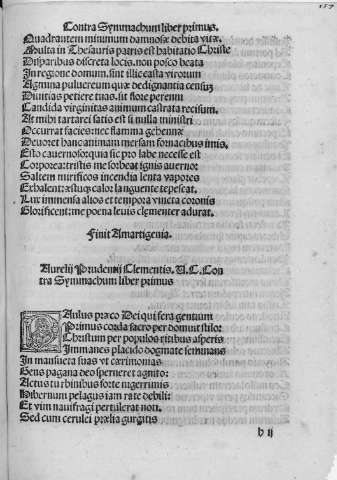 157
Contra Symmachum liber primus.
Quadrantem minimum damnosæ debita vitæ.
Multa in Thesauris patris est habitatio Christe
Disparibus discreta locis. non posco beata
In regione domum. sint illic casta virorum
Agmina puluereum quæ dedignantia censum
Diuitias petiere tuas. sit flore perenni
Candida virginitas animum castrata recisum.
At mihi tartarei satis est si nulla ministri
Occurrat facies: nec flamma gehennæ
Deuoret hanc animam mersam fornacibus imis.
Esto cauernoso quia sic pro labe necesse est
Corporea: tristis me sorbeat ignis auerno:
Saltem mitificos incendia lenta vapores
Exhalent: æstuq; calor languente tepescat.
Lux immensa alios et tempora vincta coronis
Glorificent: me poena leuis clementer adurat.
Finit Amartigenia.
Aurelij Prudentij Clementis. V. C. Con
tra Symmachum liber primus
PAulus præco Dei qui fera gentium
Primus corda sacro perdomuit stilo:
Christum per populos ritibus asperis
Immanes placido dogmate seminans
In mansueta suas vt cærimonias
Gens pagana deo sperneret agnito:
Actus turbinibus forte nigerrimis
Hibernum pelagus iam rate debili:
Et vim naufragi pertulerat noti.
Sed cum cerulei prælia gurgitis
b ij